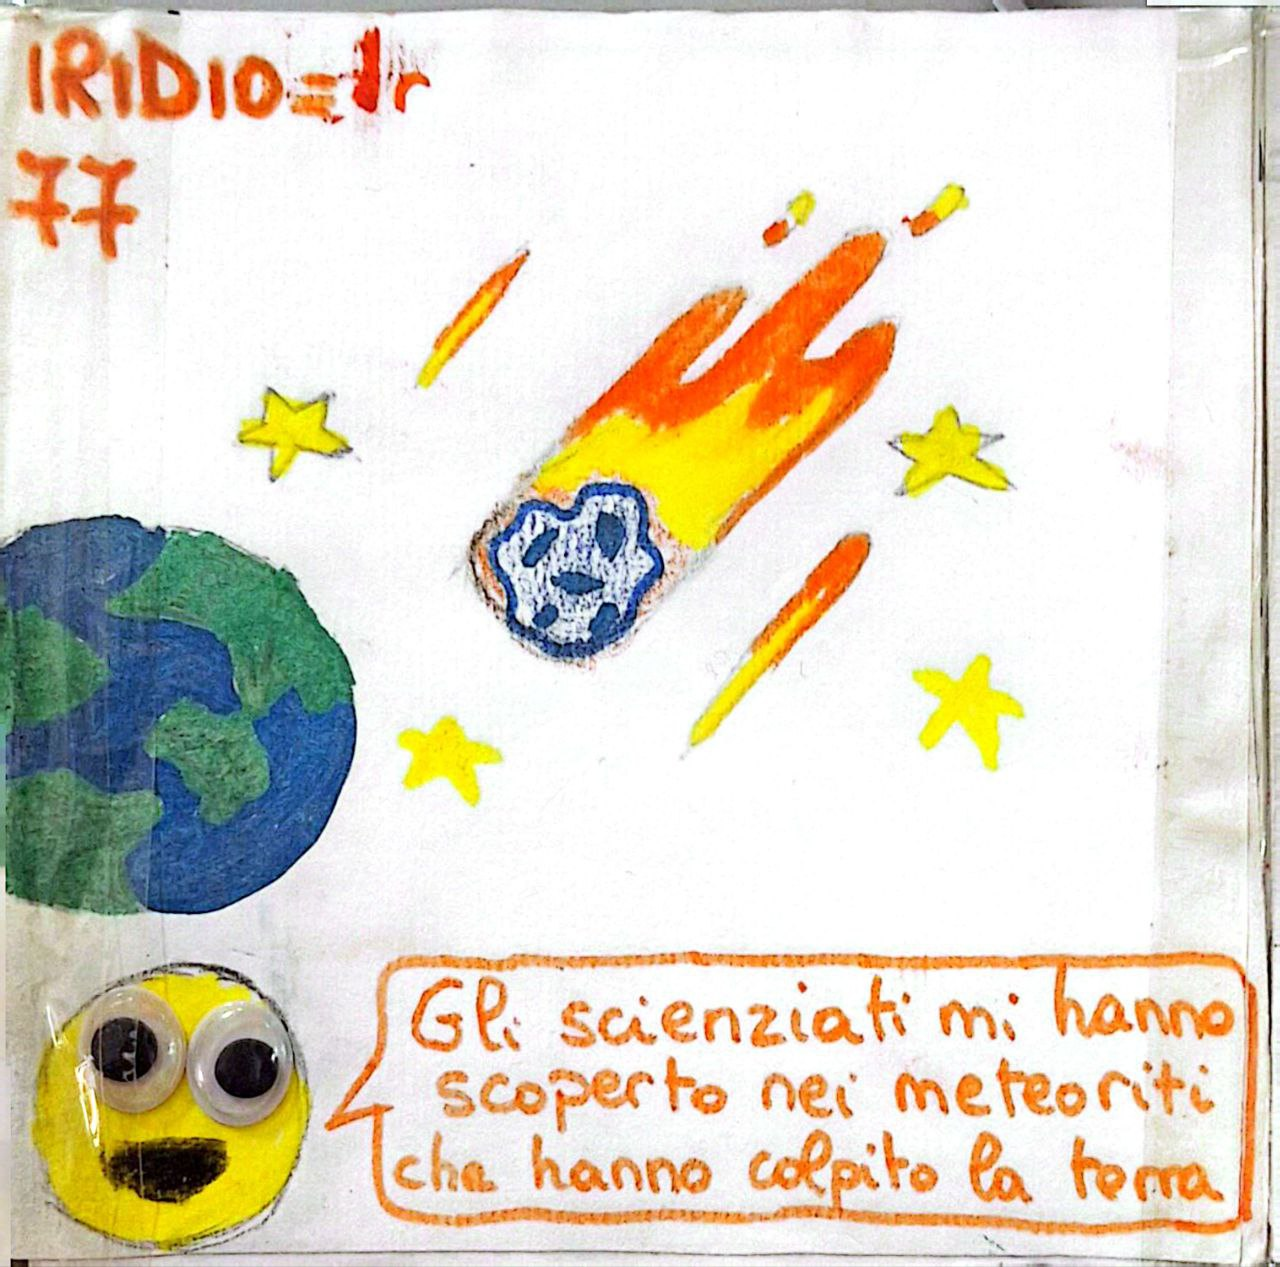 IRIDIO=Ir
77
Gli scienziati mi hanno
scoperto nei meteoriti
che hanno colpito la terra